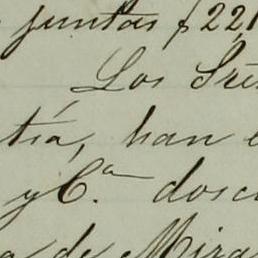 juntas $ 221
Los Sres
tía, han e
y C.ª dosc
a de Mira